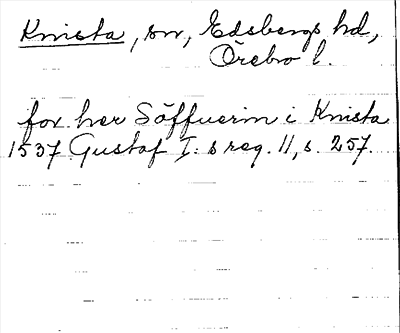 Knista, sn, Edsbergs hd,
Örebro l.
for her Söffuerin i Knista
1537 Gustaf I: s reg. 11, s. 257.